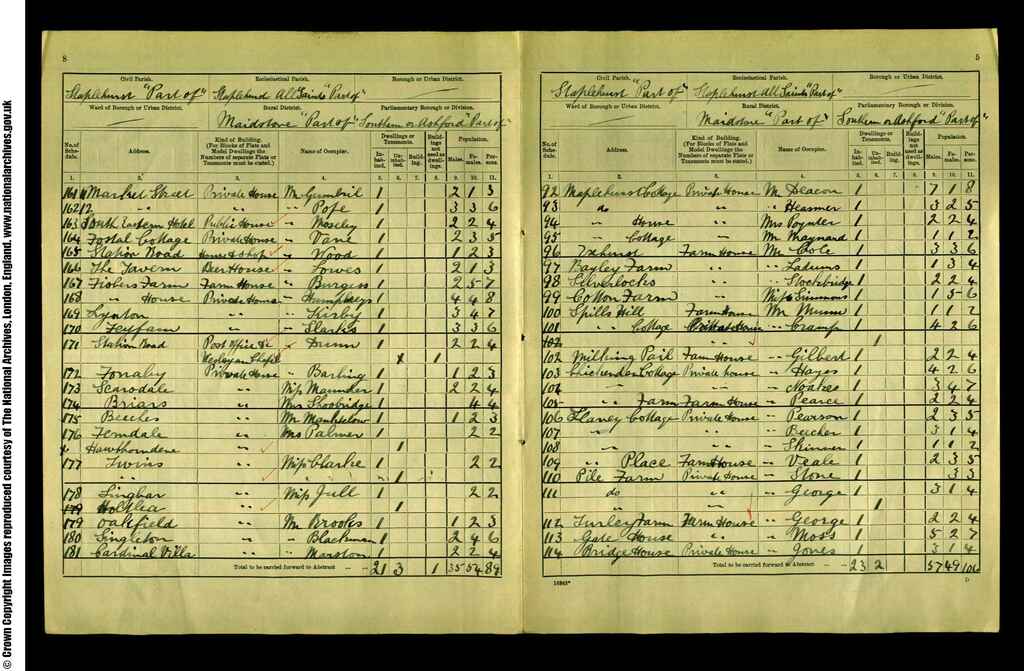 © Crown Copyright Images reproduced courtesy of The National Archives, London, England. www.nationalarchives.gov.uk
8
Civil Parish. Ecclesiastical Parish. Borough or Urban District.
Staplehurst "Part of" Staplehurst All Saints "Part of"
Ward of Borough or Urban District. Rural District. Parliamentary Borough or Division.
Maidstone "Part of" Southern or Ashford "Part of"
No. of Schedule. Address. Kind of Building. (For Blocks of Flats and Model Dwellings the Numbers of separate Flats or Tenements must be stated.) Name of Occupier. Dwellings or Tenements. Inhabited. Uninhabited. Building. Buildings not used as dwellings. Population. Males. Females. Persons.
1. 2. 3. 4. 5. 6. 7. 8. 9. 10. 11.
161 Market Street Private House Mr 1 2 1 3
162 " " " Pope 1 3 3 6
163 South Eastern Hotel Public House " Moseley 1 2 2 4
164 Postal Cottage Private House " Vane 1 2 3 5
165 Station Road House & Shop " Wood 1 1 2 3
166 The Tavern Beer House " Lowes 1 2 1 3
167 Fishers Farm Farm House " Burgess 1 2 5 7
168 " House Private House " Humphreys 1 4 4 8
169 Lynton " " Kirby 1 3 4 7
170 " " 1 3 3 6
171 Station Road Post Office &c " Dunn 1 2 2 4
Wesleyan Chapel 1
172 Private House " 1 1 2 3
173 Scarsdale " Miss Maunder 1 2 2 4
174 Briars " Mrs Shoobridge 1 4 4
175 Beeches " Mr 1 1 2 3
176 Ferndale " Mrs Palmer 1 2 2
Hawthorndene " 1
177 Twins " Miss Clarke 1 2 2
" " 1
178 " Miss Jull 1 2 2
" 1
179 Oakfield " Mr Brooks 1 1 2 3
180 Singleton " " Blackman 1 2 4 6
181 Cardinal Villa " " Marston 1 2 2 4
Total to be carried forward to Abstract 21 3 1 35 54 89
5
Civil Parish. Ecclesiastical Parish. Borough or Urban District.
Staplehurst "Part of" Staplehurst All Saints "Part of"
Ward of Borough or Urban District. Rural District. Parliamentary Borough or Division.
Maidstone "Part of" Southern or Ashford "Part of"
No. of Schedule. Address. Kind of Building. (For Blocks of Flats and Model Dwellings the Numbers of separate Flats or Tenements must be stated.) Name of Occupier. Dwellings or Tenements. Inhabited. Uninhabited. Building. Buildings not used as dwellings. Population. Males. Females. Persons.
1. 2. 3. 4. 5. 6. 7. 8. 9. 10. 11.
92 Maplehurst Cottage Private House Mr Deacon 1 7 1 8
93 do " " 1 3 2 5
94 " House " Mrs Poynter 1 2 2 4
95 " Cottage " Mr Maynard 1 1 1 2
96 Farm House Mr Cole 1 3 3 6
97 Bayley Farm " " 1 1 3 4
98 Silverlocks " " Stockbridge 1 2 2 4
99 Cotton Farm " Miss Simmons 1 1 5 6
100 Spills Hill Farm House Mr Munn 1 1 1 2
101 " Cottage Private House " Cramp 1 4 2 6
102 1
102 Milking Pail Farm House " Gilbert 1 2 2 4
103 Chickenden Cottage Private House " Hayes 1 4 2 6
104 " " " Noakes 1 3 4 7
105 " Farm Farm House " Pearce 1 2 2 4
106 Slaney Cottage Private House " Pearson 1 2 3 5
107 " " " Beecher 1 3 1 4
108 " " " Skinner 1 1 1 2
109 " Place Farm House " Veale 1 2 3 5
110 Pile Farm Private House " Stone 1 3 3
111 do " " George 1 3 1 4
" 1
112 Turley Farm Farm House " George 1 2 2 4
113 Gate House " " Moss 1 5 2 7
114 Bridge House Private House " Jones 1 3 1 4
Total to be carried forward to Abstract 23 2 57 49 106
D